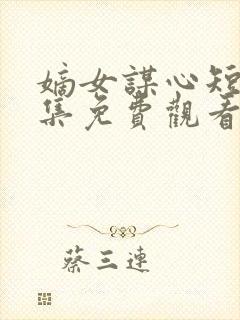 嫡女謀心短
集免費觀看
蔡三連